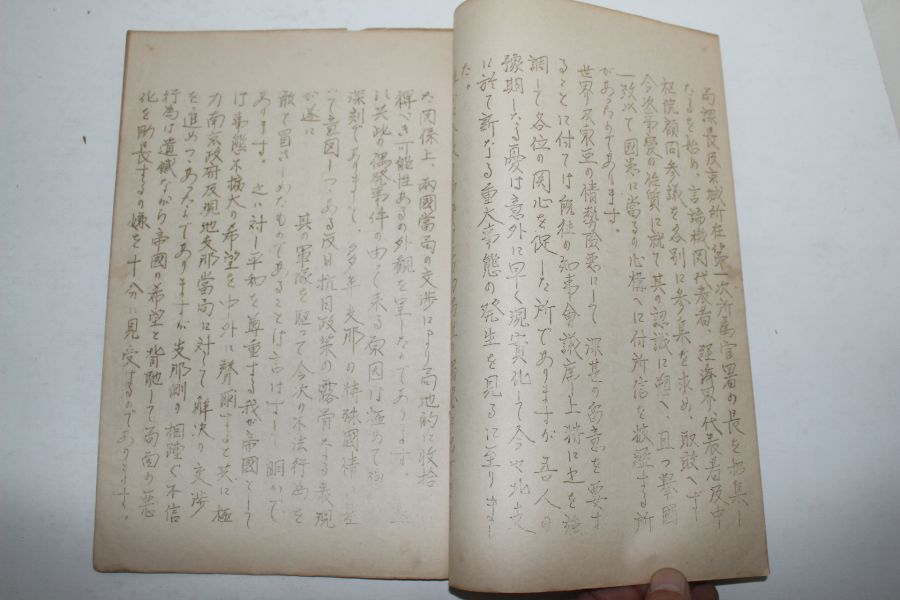 局課長及京城所在第一次所属官署の長を招集し
たるを始め、言論機関代表者、経済界代表者及中
枢院顧問参議を各別に参集を求め、取敢へず
今次事変の性質に就て其の認識に愬へ、且つ挙國
一致以て國策に當るの心構へに付所信を披瀝する所
があつたのであります。
世界及東亜の情勢険悪にして深甚の留意を要す
ることに付ては既往の知事會議席上特に之を強
調して各位の関心を促した所でありますが吾人の
豫期したる憂は意外に早く現實化して今や北支
に於て新なる重大事態の発生を見るに至りまし
た。
た関係上、両國當局の交渉により局地的に收拾
得べき可能性あるの外観を呈したのであります。然
に其此の偶発事件の由て来る原因は極めて
深刻でありまして、多年支那の特殊國情に
て意図しつゝある反日抗日政策の露骨なる表現
が遂に其の軍隊を駆つて今次の不法行為を
敢て冒さしめたものであることは言はずして明かで
あります。之に対し平和を尊重する我が帝國として
は事態不拡大の希望を中外に聲明すると共に極
力南京政府及現地支那當局に対して解決の交渉
を進めつゝあつたのでありますが支那側の相踵ぐ不信
行為は遺憾ながら帝國の希望と背馳して局面の悪
化を助長するの嫌を十分に見受するのであります。